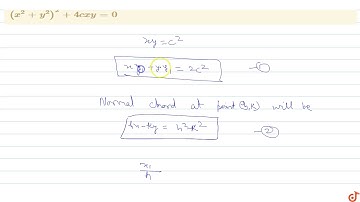 (x² + y²)² + 4cxy = 0
xy = c²
= 2c² —①
Normal chord at point (h,k) will be
hx - ky = h² - k² —②
x
h